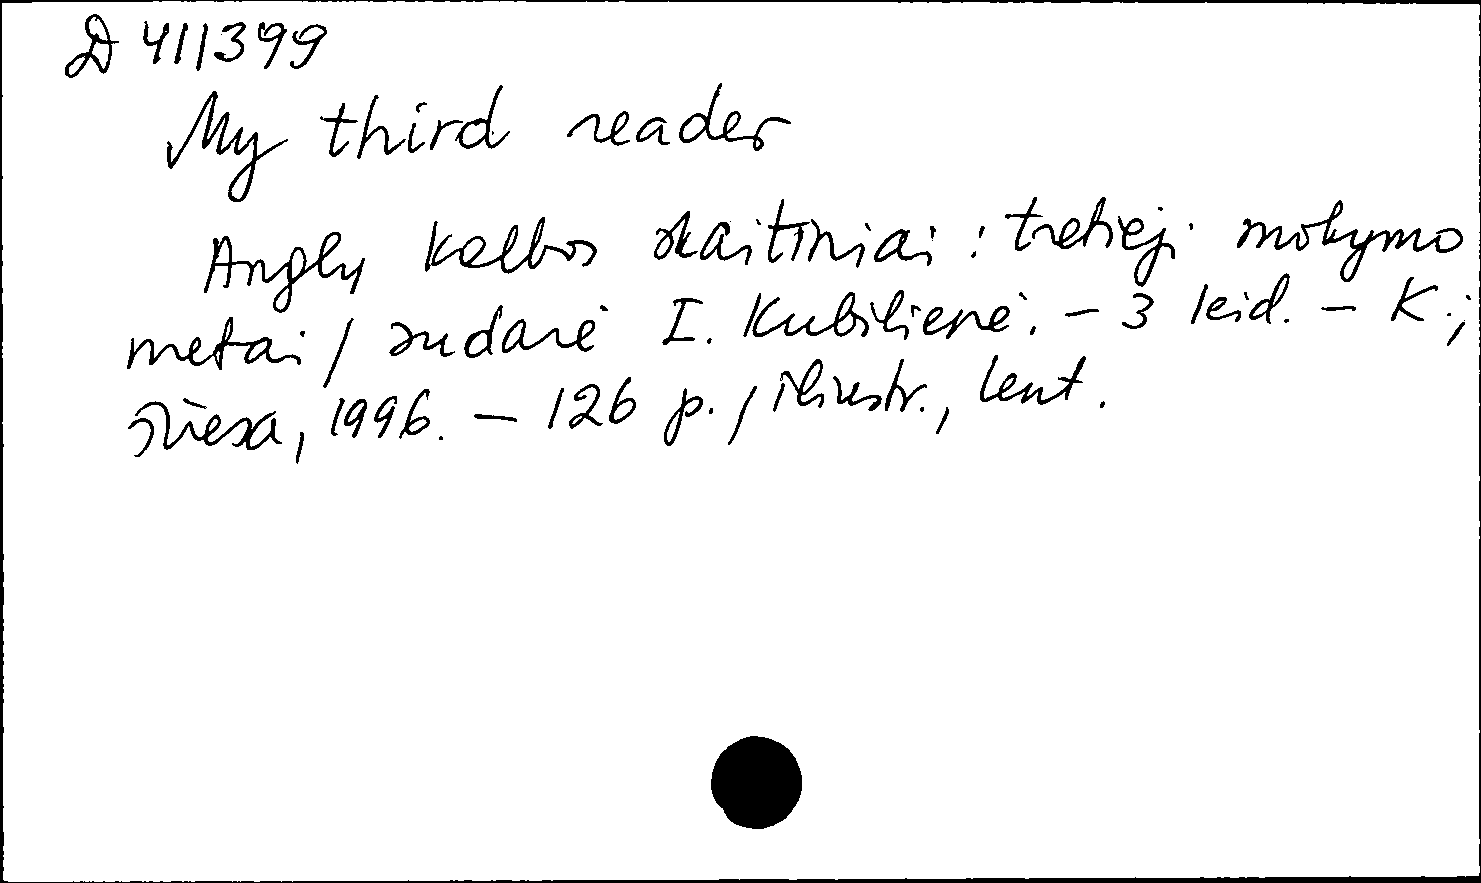 D 411399
My third reader
Anglų kalbos skaitiniai : tretieji mokymo
metai / sudarė I. Kubilienė. – 3 leid. – K.;
Šviesa, 1996. – 126 p. / iliustr., lent.